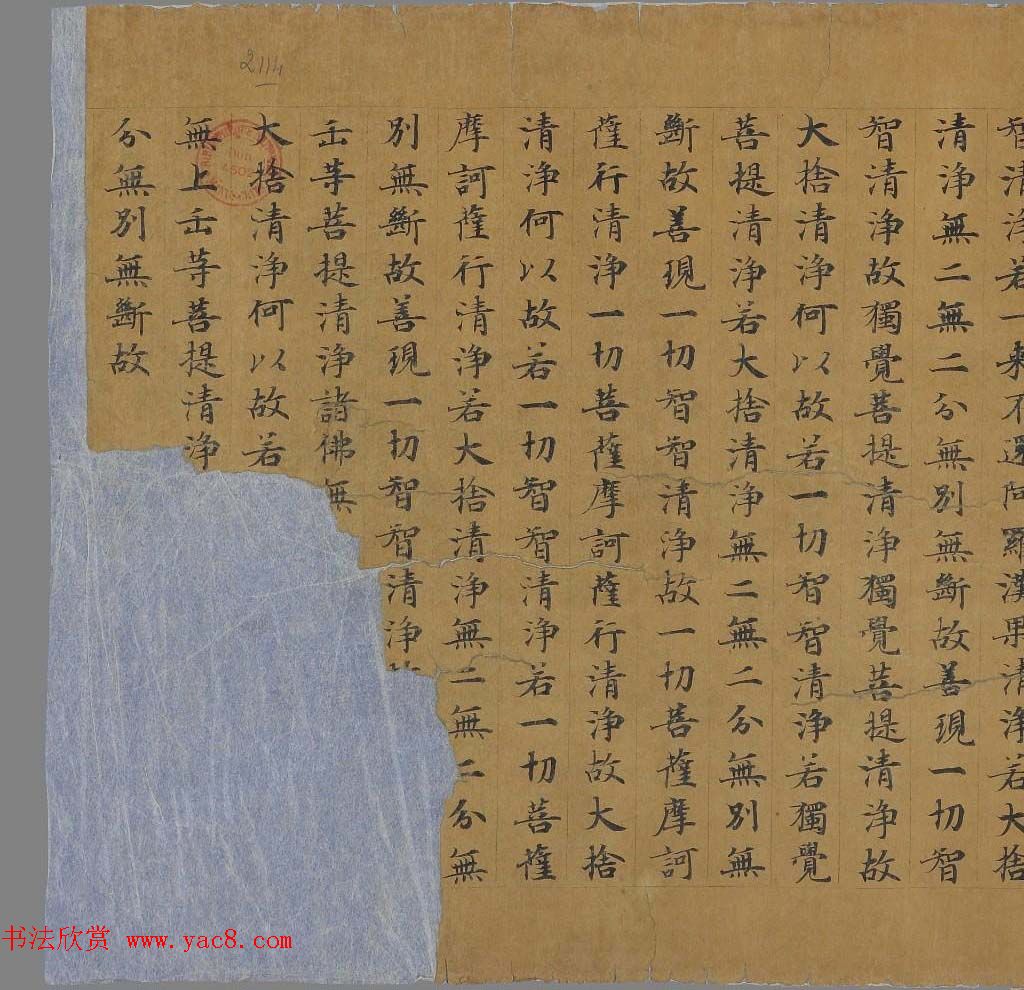 智清淨若一來不還阿羅漢果清淨若大捨
清淨無二無二分無別無斷故善現一切智
智清淨故獨覺菩提清淨獨覺菩提清淨故
大捨清淨何以故若一切智智清淨若獨覺
菩提清淨若大捨清淨無二無二分無別無
斷故善現一切智智清淨故一切菩薩摩訶
薩行清淨一切菩薩摩訶薩行清淨故大捨
清淨何以故若一切智智清淨若一切菩薩
摩訶薩行清淨若大捨清淨無二無二分無
別無斷故善現一切智智清淨故
正等菩提清淨諸佛無
大捨清淨何以故若
無上正等菩提清淨
分無別無斷故
2114
书法欣赏 www.yac8.com